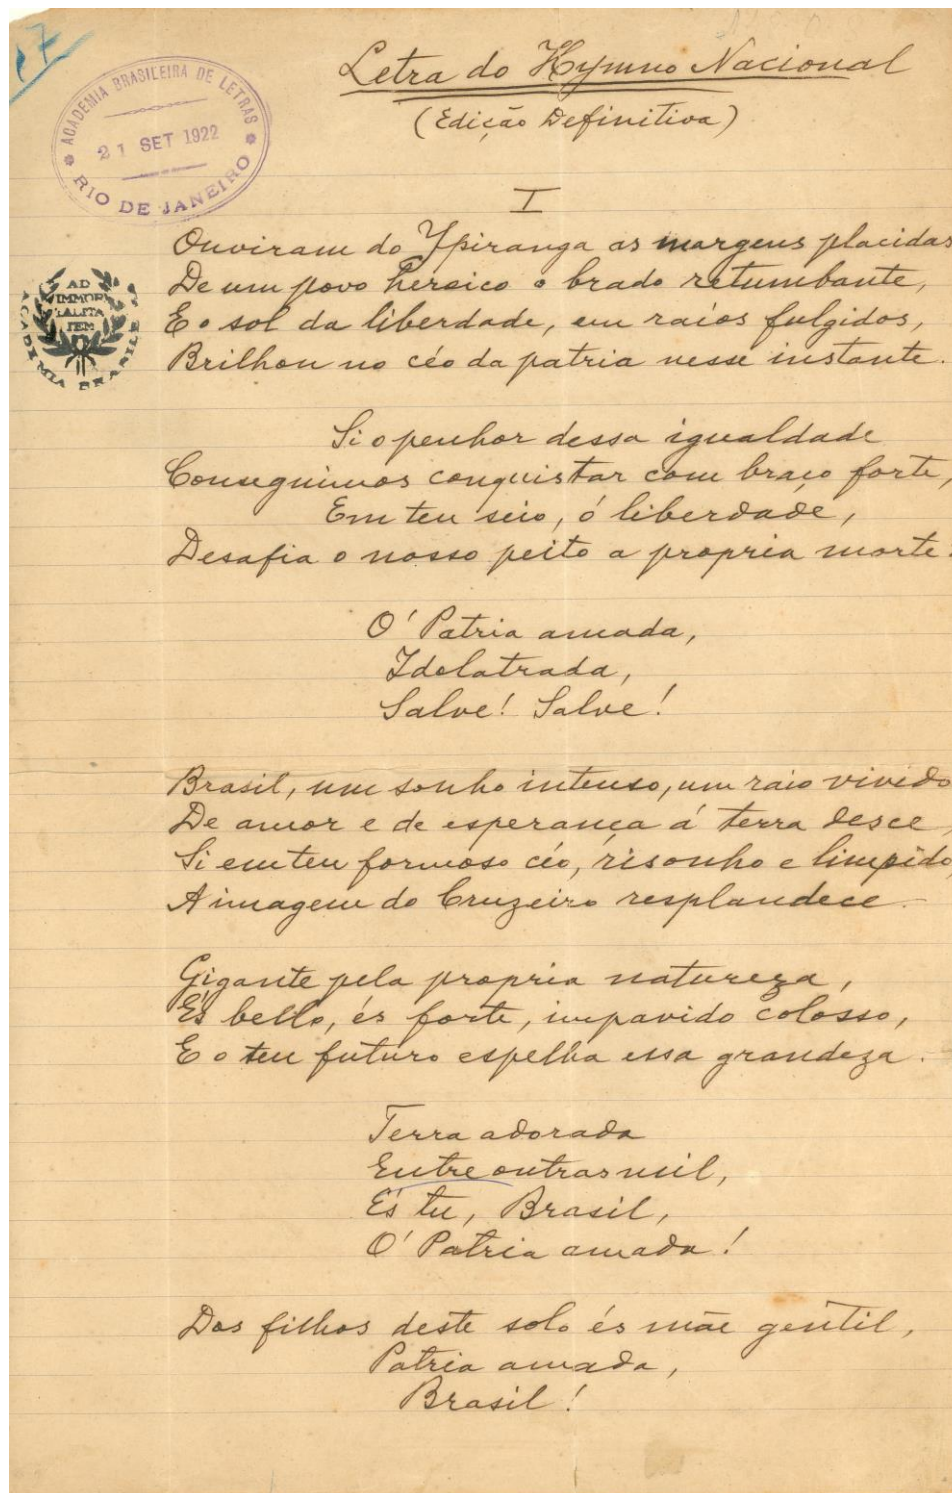 17
ACADEMIA BRASILEIRA DE LETRAS
21 SET 1922
RIO DE JANEIRO
Letra do Hymno Nacional
(Edição Definitiva)
I
Ouviram do Ypiranga as margens placidas
De um povo heroico o brado retumbante,
E o sol da liberdade, em raios fulgidos,
Brilhou no céo da patria nesse instante.
AD
IMMOR
TALITA
TEM
ACADEMIA BRASILE
Si o penhor dessa igualdade
Conseguimos conquistar com braço forte,
Em teu seio, ó liberdade,
Desafia o nosso peito a propria morte.
O' Patria amada,
Idolatrada,
Salve! Salve!
Brasil, um sonho intenso, um raio vivido
De amor e de esperança á terra desce,
Si em teu formoso céo, risonho e limpido,
A imagem do Cruzeiro resplandece.
Gigante pela propria natureza,
És bello, és forte, impavido colosso,
E o teu futuro espelha essa grandeza.
Terra adorada
Entre outras mil,
És tu, Brasil,
O' Patria amada!
Dos filhos deste solo és mãe gentil,
Patria amada,
Brasil!